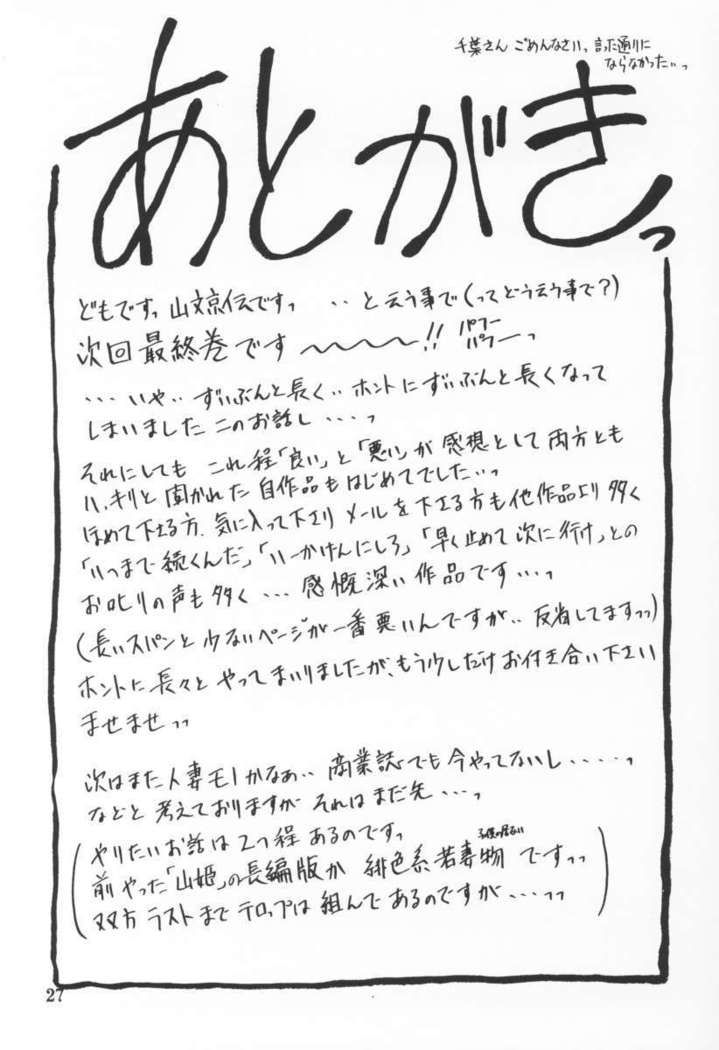 千葉さん ごめんなさいっ 言った通りに
ならなかった..っ
あとがきっ
どもですっ 山文京伝ですっ ‥と云う事で(ってどう云う事で?)
次回最終巻です〜〜〜〜!! パフー
パフーっ
‥‥いや‥ずいぶんと長く‥ホントにずいぶんと長くなって
しまいました このお話し‥‥っ
それにしても これ程「良い」と「悪い」が感想として両方とも
ハッキリと聞かれた自作品もはじめてでした..っ
ほめて下さる方、気に入って下さり メールを下さる方も他作品より多く
「いつまで続くんだ」「いーかげんにしろ」「早く止めて次に行け」との
お叱りの声も多く‥‥感慨深い作品です‥‥っ
(長いスパンと少ないページが一番悪いんですが‥反省してますっっ)
ホントに長々とやってまいりましたが、もう少しだけお付き合い下さい
ませませっっ
次はまた人妻モノかなぁ‥商業誌でも今やってないし‥‥‥っ
などと考えておりますが それはまだ先‥‥っ
(やりたいお話は2つ程あるのですっ
前やった「山姫」の長編版か 緋色系若妻物 ですっっ
双方ラストまでテロップは組んであるのですが‥‥っっ)
27